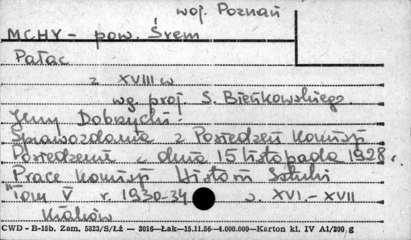 woj. Poznań
MCHY - pow. Śrem
Pałac
z XVIII w
wg. proj. S. Bieńkowskiego
Jerzy Dobrzycki:
Sprawozdania z Posiedzeń Komisji
Posiedzenie z dnia 15 listopada 1928 r.
Prace Komisji Historii Sztuki
Tom V r. 1930-34 s. XVI - XVII
Kraków
CWD - B-15b. Zam. 5823/S/Łż — 2016—Łak—15.11.56—4.000.000—Karton kl. IV A1/200 g